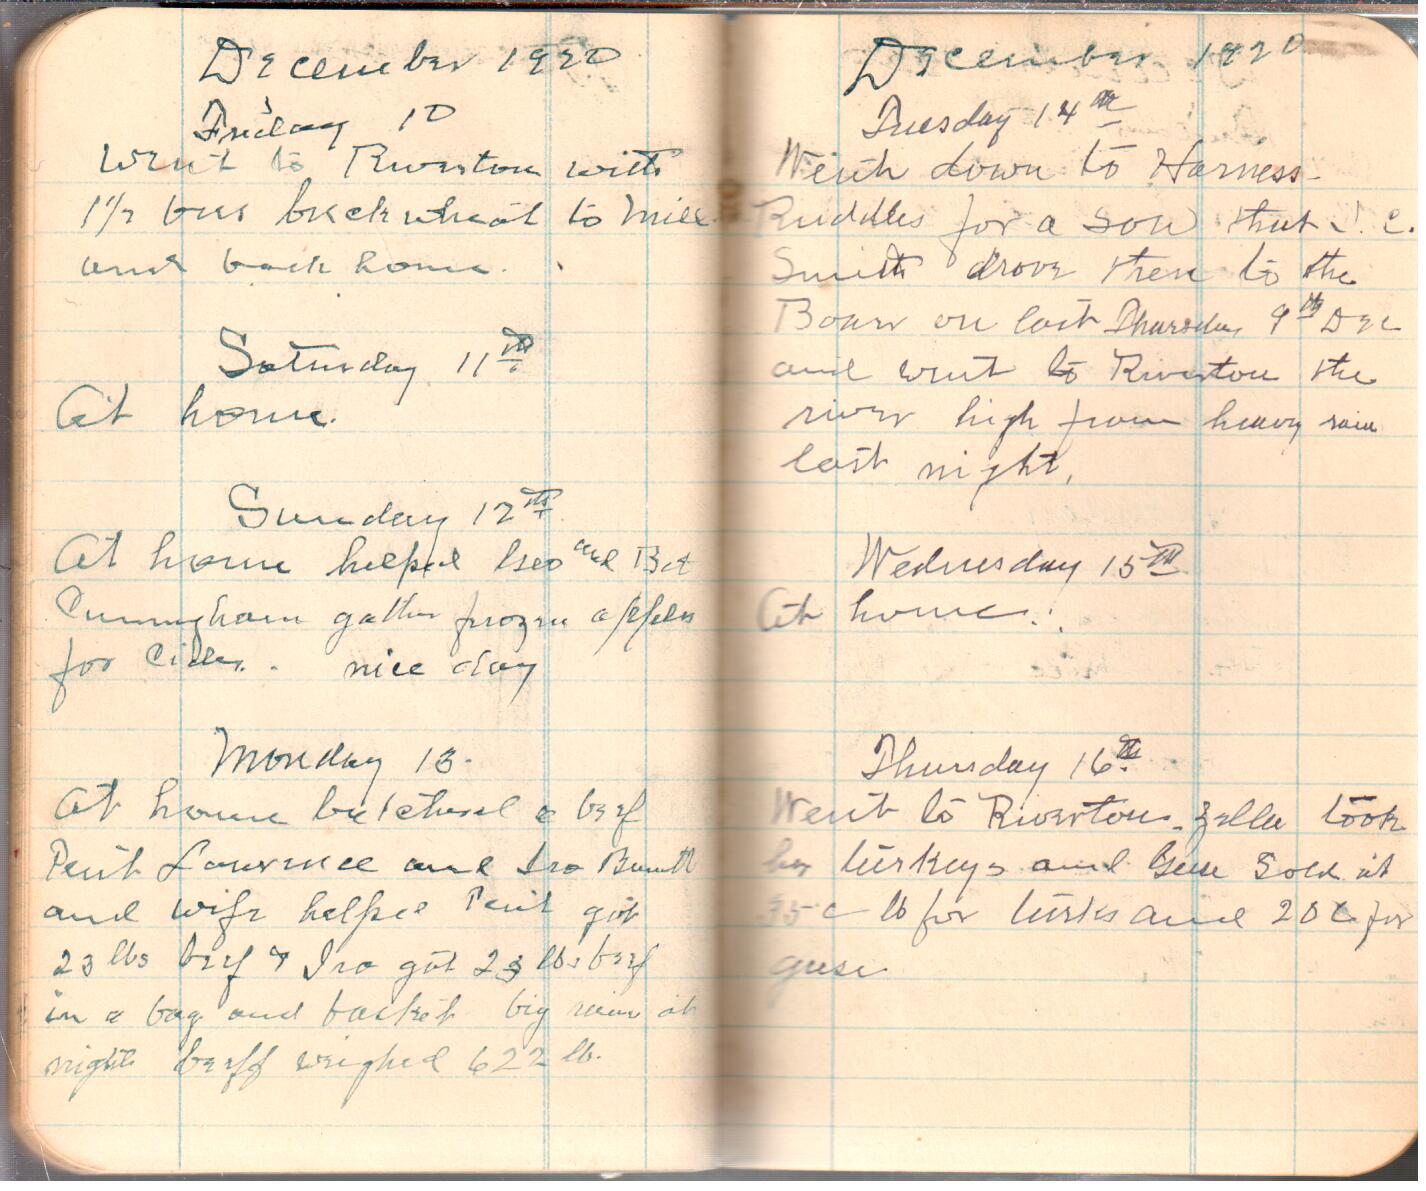 December 1920
Friday 10
Went to Riverton with
1½ bus buckwheat to Mill
and back home.
Saturday 11th
At home.
Sunday 12th
At home helped Geo and Bet
Cunningham gather frozen apples
for Cider. nice day
Monday 13.
At home butchered a beef
Pent Lawrence and Ira
and wife helped Pent got
23 lbs beef & Ira got 23 lbs beef
in a bag and basket big rain at
night beeff weighed 622 lb.
December 1920
Tuesday 14th
Went down to Harness
Ruddles for a Sow that J. C.
Smith drove then to the
Boar on last Thursday 9th Dec
and went to Riverton the
river high from heavy rain
last night.
Wednesday 15th
At home.
Thursday 16th
Went to Riverton. Zella took
her turkeys and Geese Sold at
c lb for turks and 20c for
geese